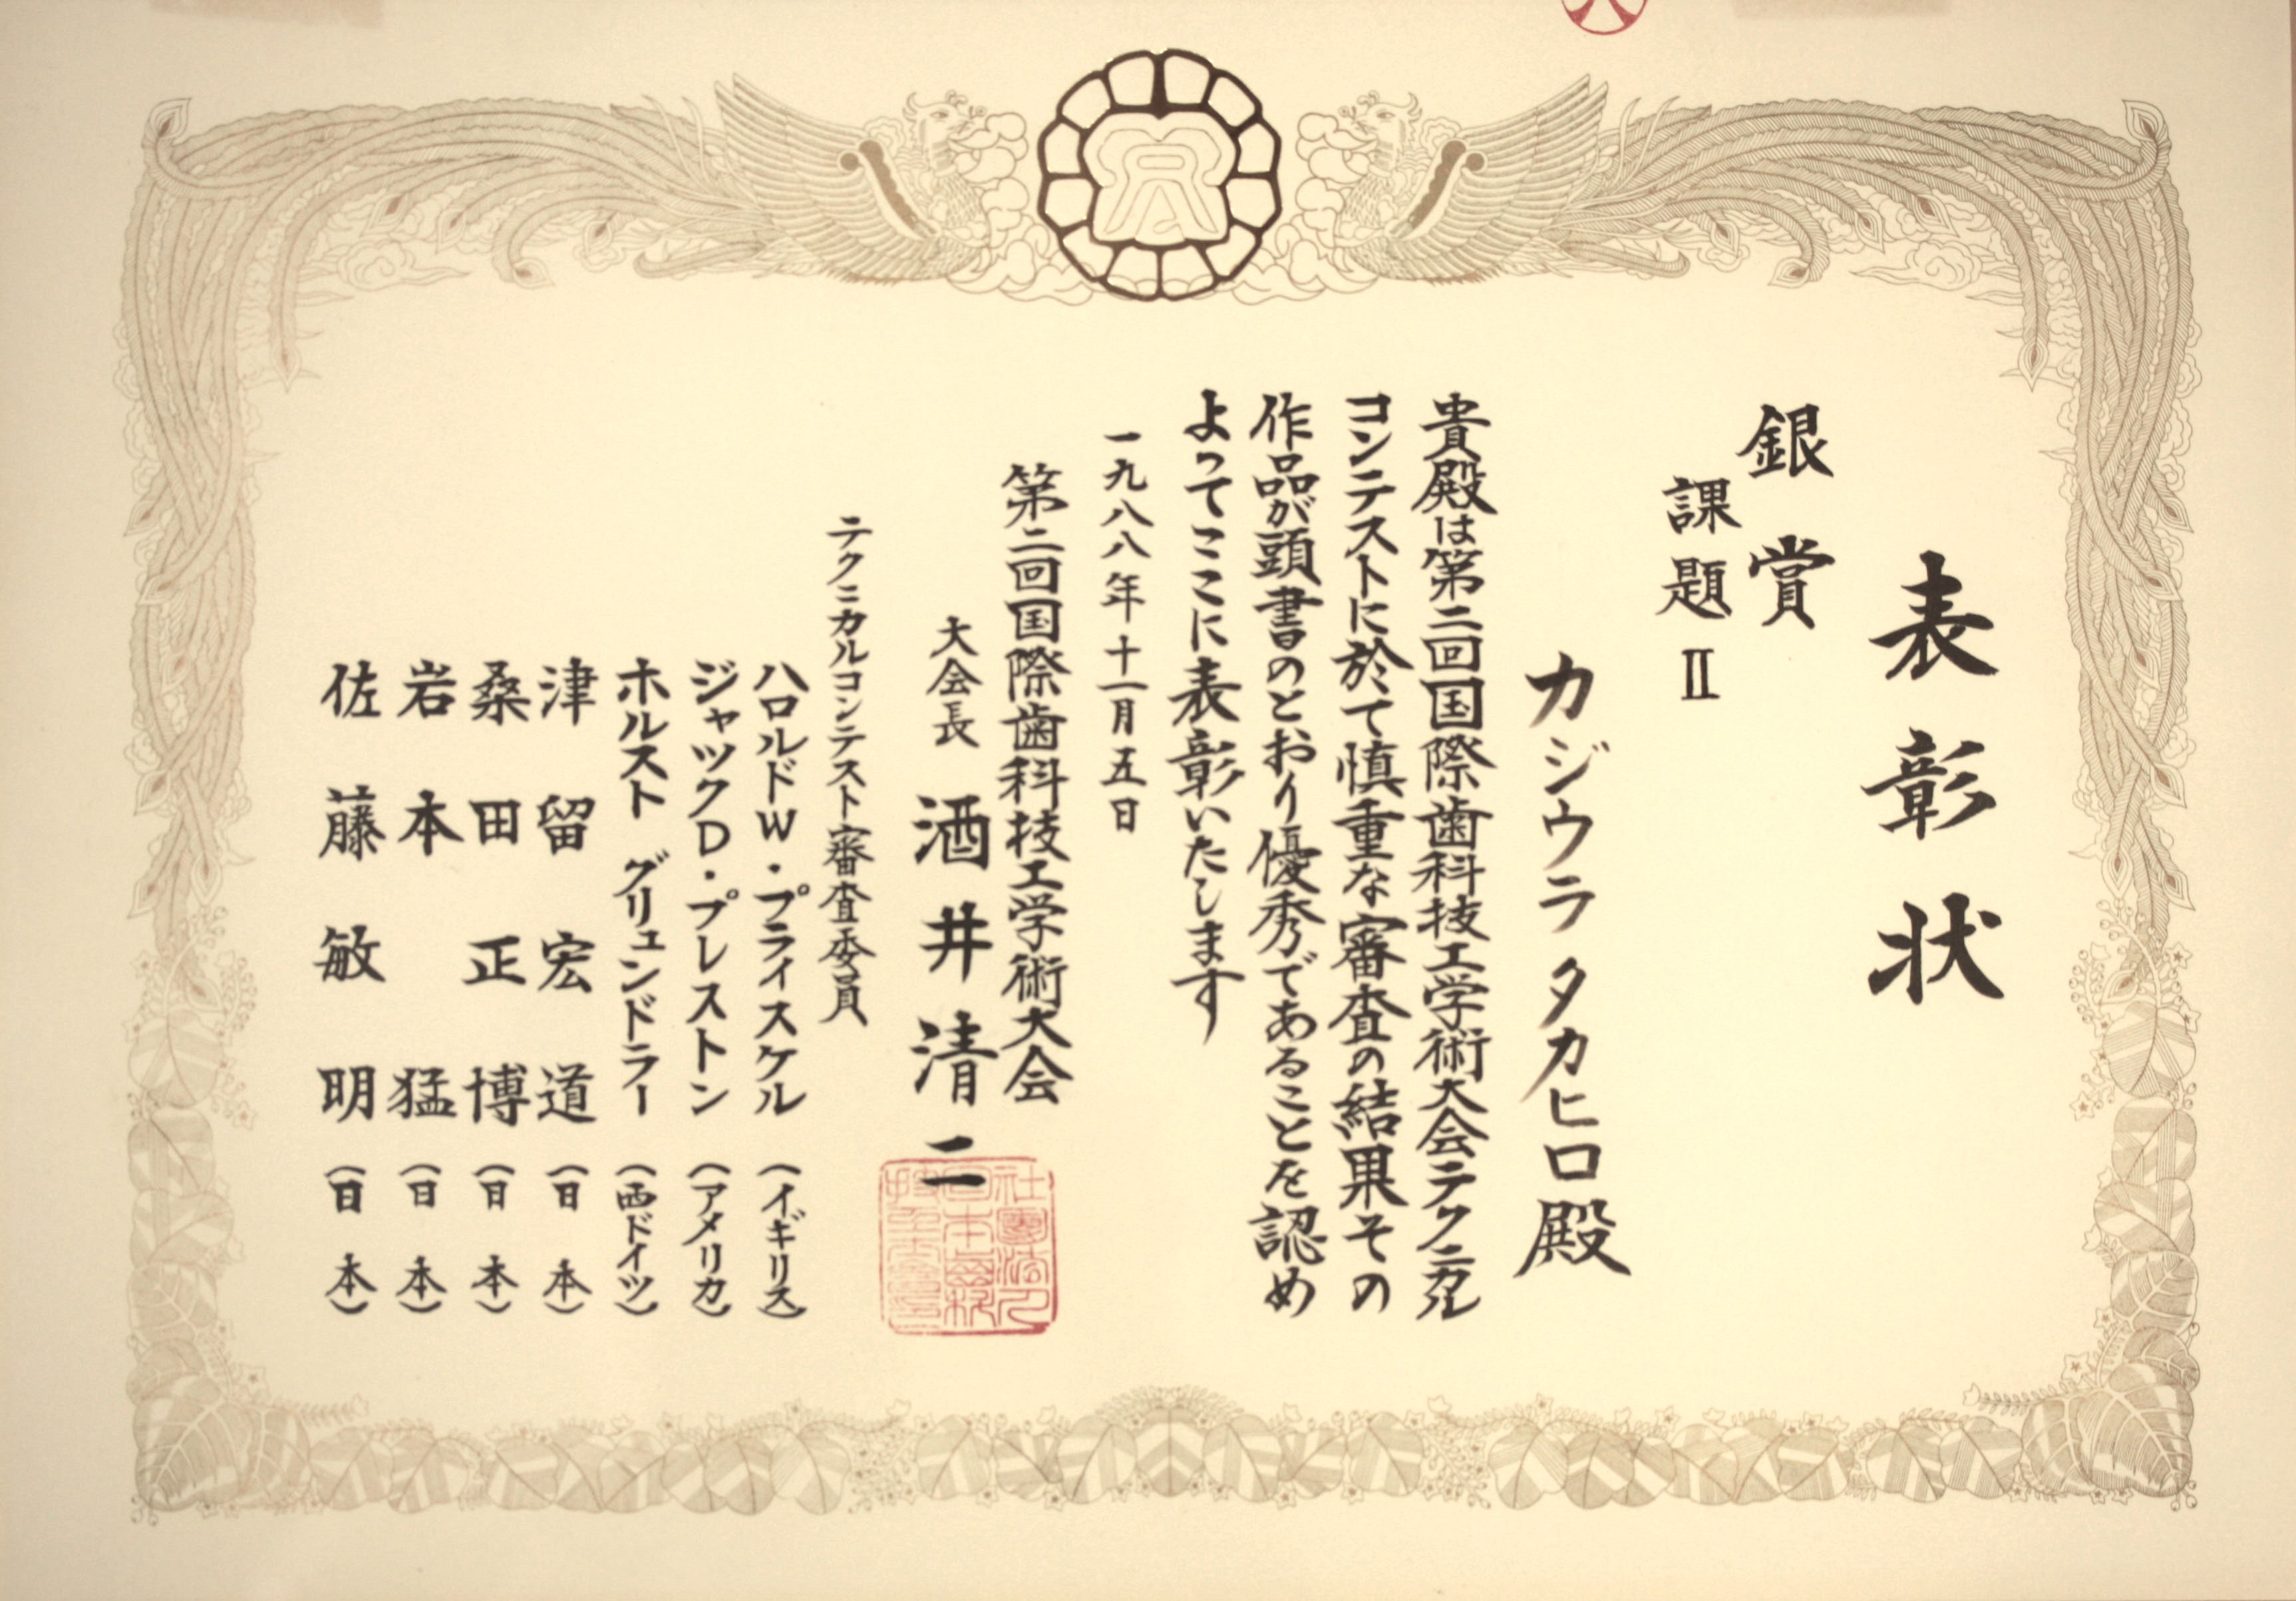 表彰状
銀賞
課題Ⅱ
カジウラタカヒロ殿
貴殿は第二回国際歯科技工学術大会テクニカル
コンテストに於て慎重な審査の結果その
作品が頭書のとおり優秀であることを認め
よってここに表彰いたします
一九八八年十一月五日
第二回国際歯科技工学術大会
大会長 酒井清二
テクニカルコンテスト審査委員
ハロルドW・プライスケル (イギリス)
ジャックD・プレストン (アメリカ)
ホルスト グリュンドラー (西ドイツ)
津留宏道 (日本)
桑田正博 (日本)
岩本猛 (日本)
佐藤敏明 (日本)